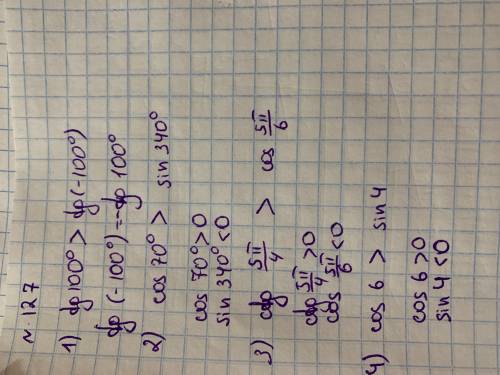 N. 127
1) tg 100° > tg (-100°)
tg (-100°) = -tg 100°
2) cos 70° > sin 340°
cos 70° > 0
sin 340° < 0
3) ctg 5π/4 > cos 5π/6
ctg 5π/4 > 0
cos 5π/6 < 0
4) cos 6 > sin 4
cos 6 > 0
sin 4 < 0